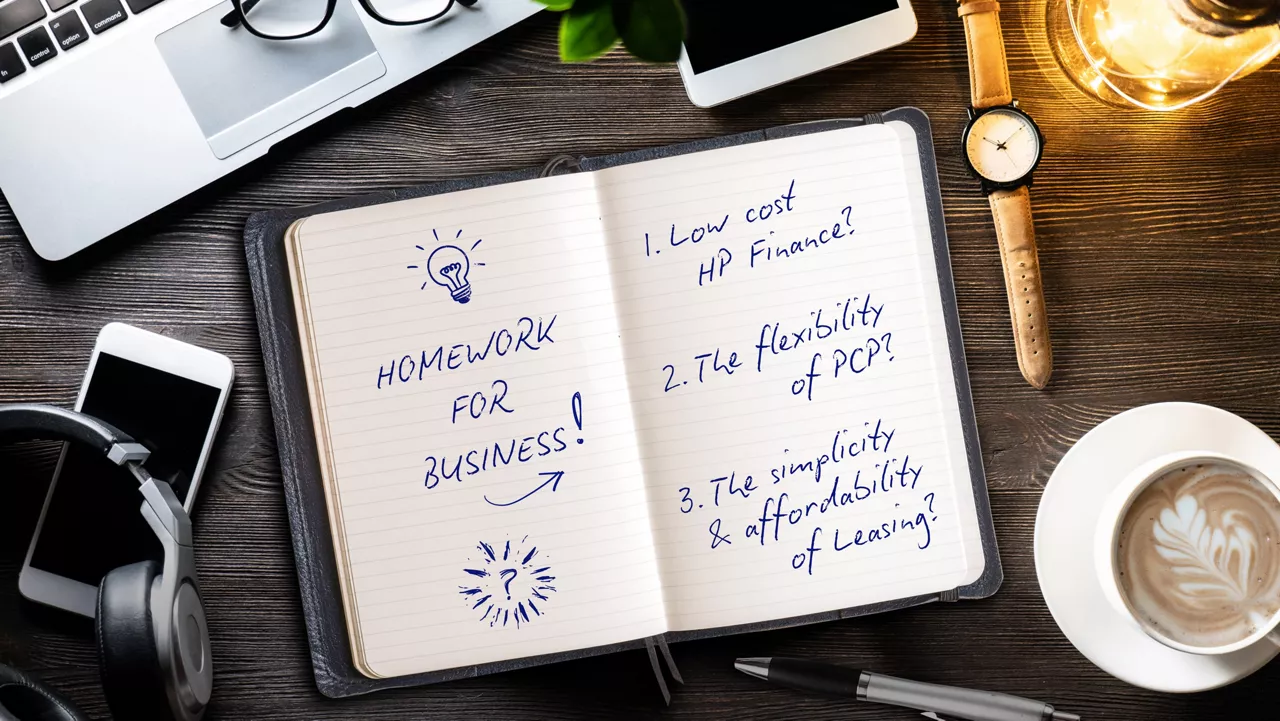 command
option
alt
control
fn
HOMEWORK
FOR
BUSINESS!
?
1. Low cost
HP Finance?
2. The flexibility
of PCP?
3. The simplicity
& affordability
of Leasing?